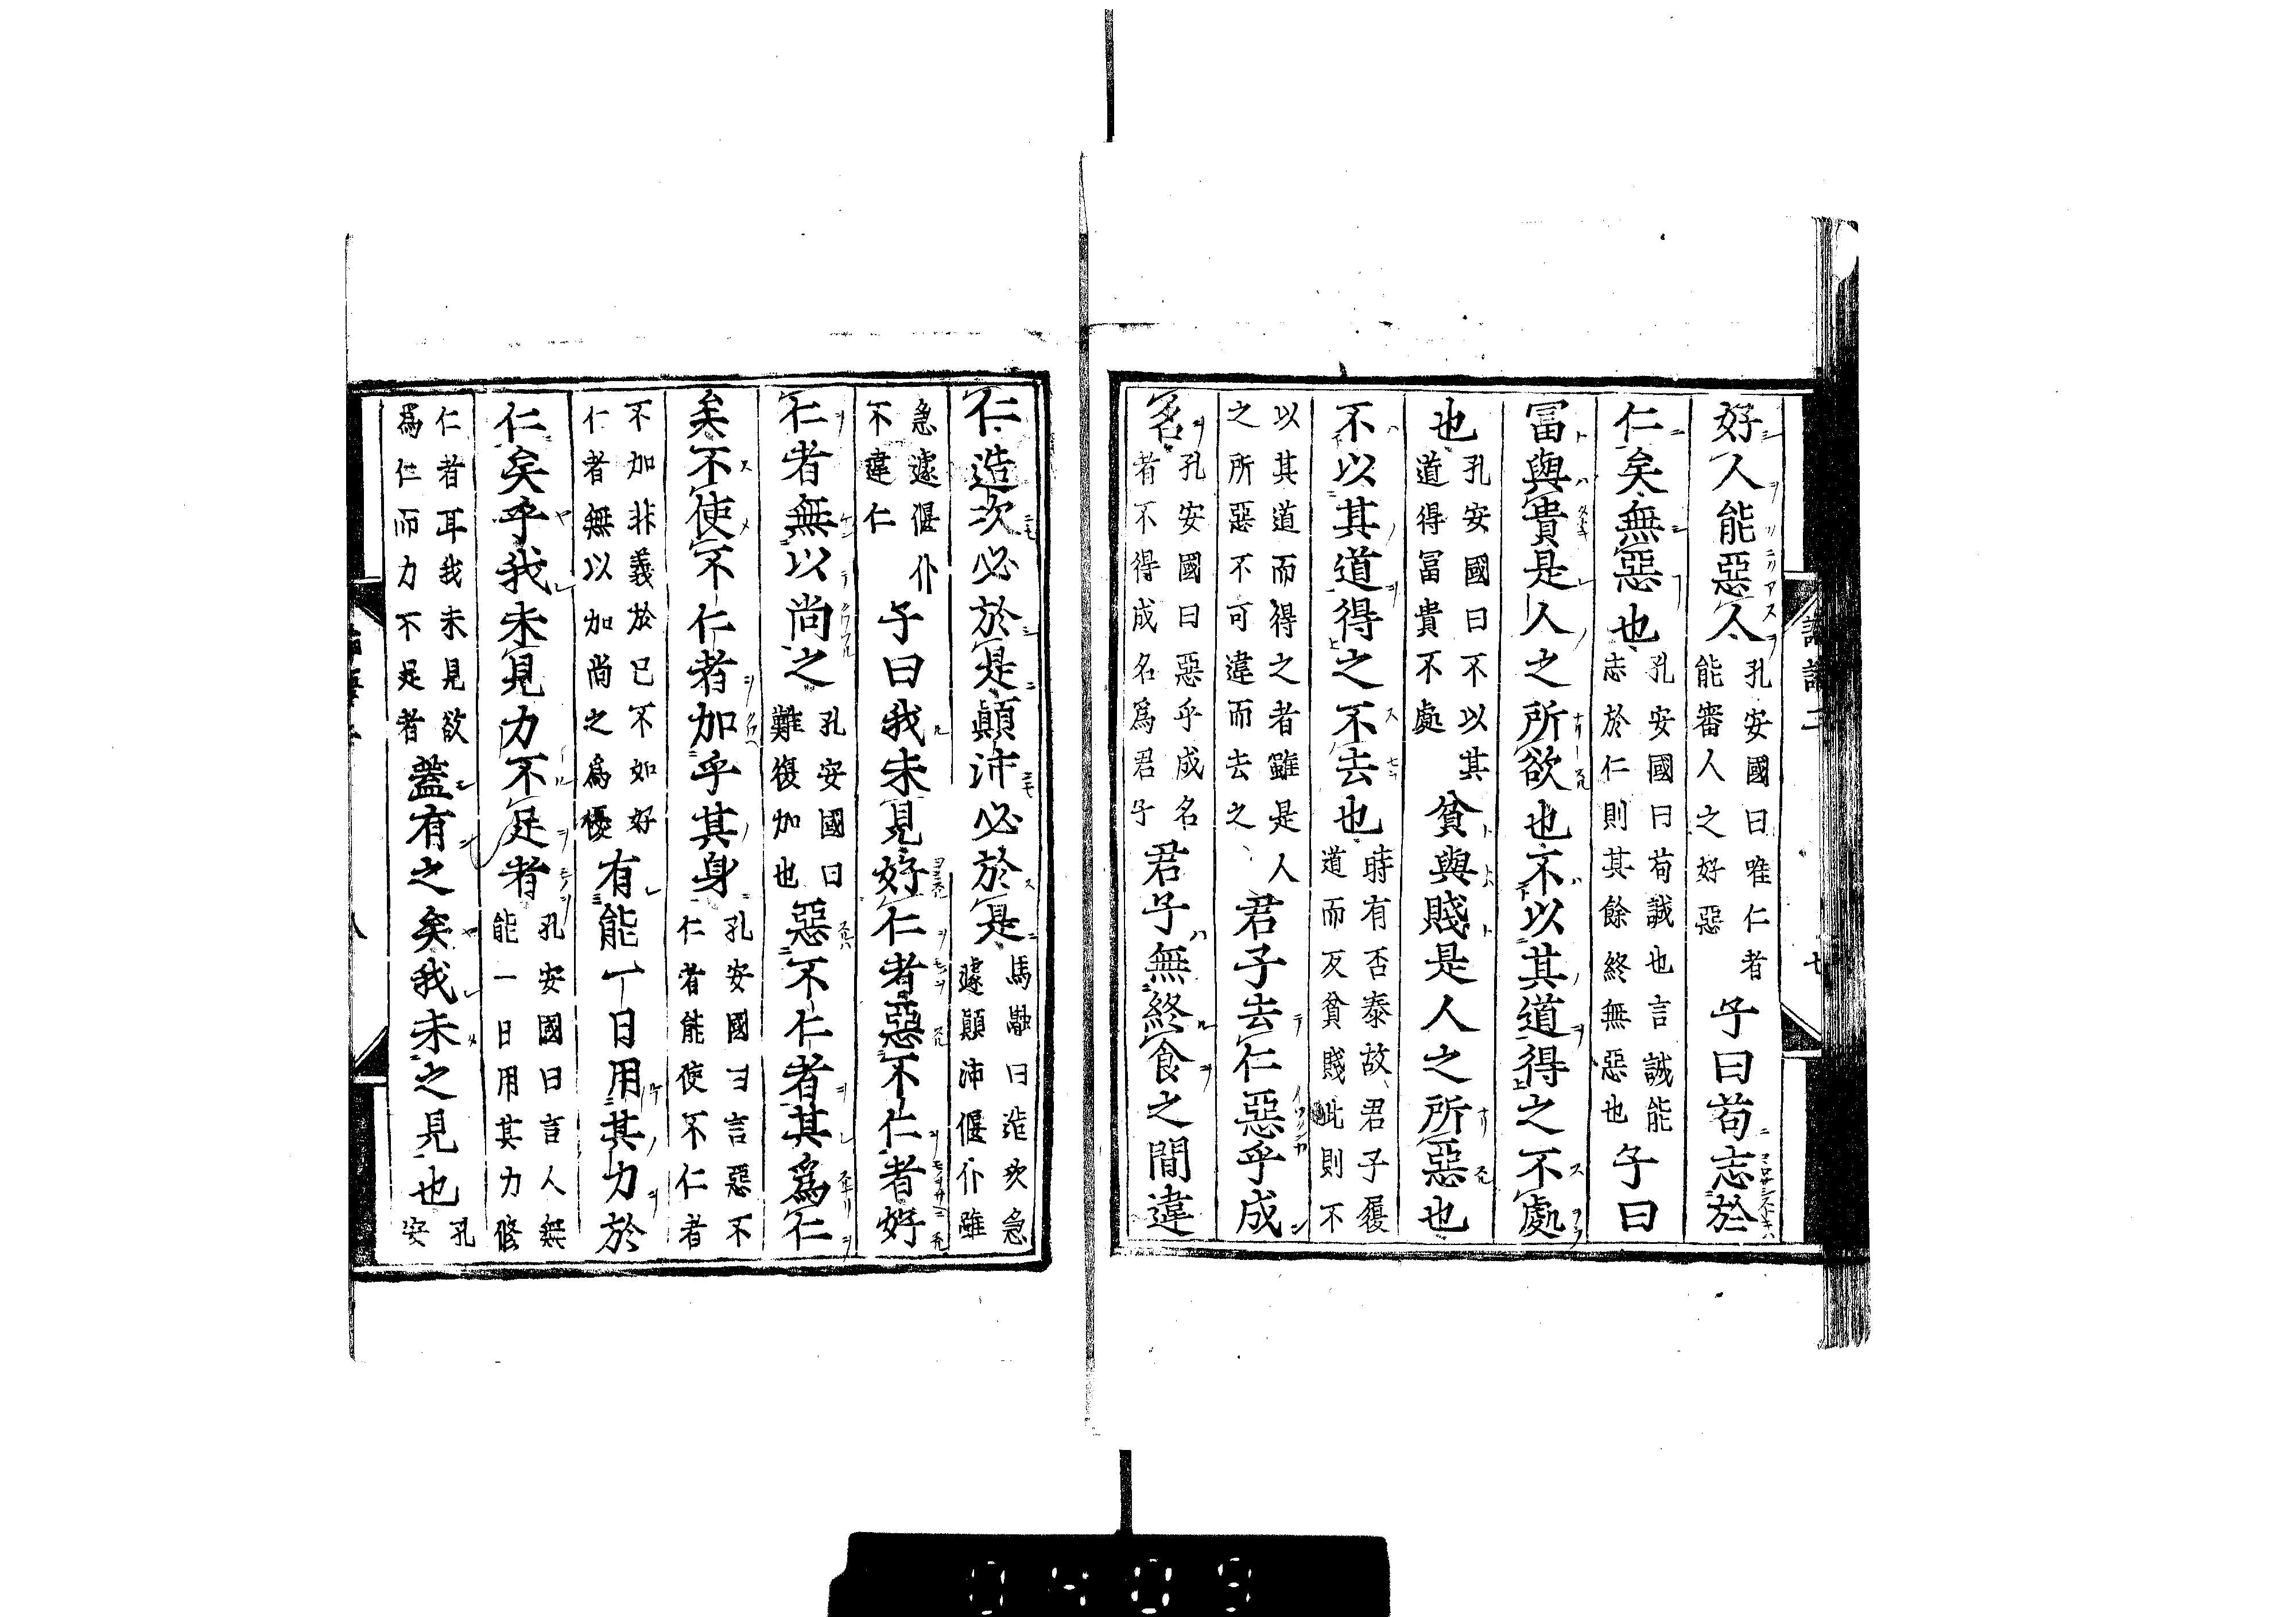 好人能惡人孔安國曰唯仁者能審人之好惡子曰苟志於
仁矣無惡也孔安國曰苟誠也言誠能志於仁則其餘終無惡也子曰
冨與貴是人之所欲也不以其道得之不處
也孔安國曰不以其道得冨貴不處貧與賤是人之所惡也
不以其道得之不去也時有否泰故君子履道而反貧賤此則不
以其道而得之者雖是人之所惡不可違而去之君子去仁惡乎成
名孔安國曰惡乎成名者不得成名爲君子君子無終食之間違
仁造次必於是顛沛必於是馬融曰造次急遽顛沛偃仆雖
急遽偃仆不違仁子曰我未見好仁者惡不仁者好
仁者無以尚之孔安國曰難復加也惡不仁者其爲仁
矣不使不仁者加乎其身孔安國曰言惡不仁者能使不仁者
不加非義於己不如好仁者無以加尚之爲優有能一日用其力於
仁矣乎我未見力不足者孔安國曰言人無能一日用其力修
仁者耳我未見欲爲仁而力不足者蓋有之矣我未之見也孔安
八
0409